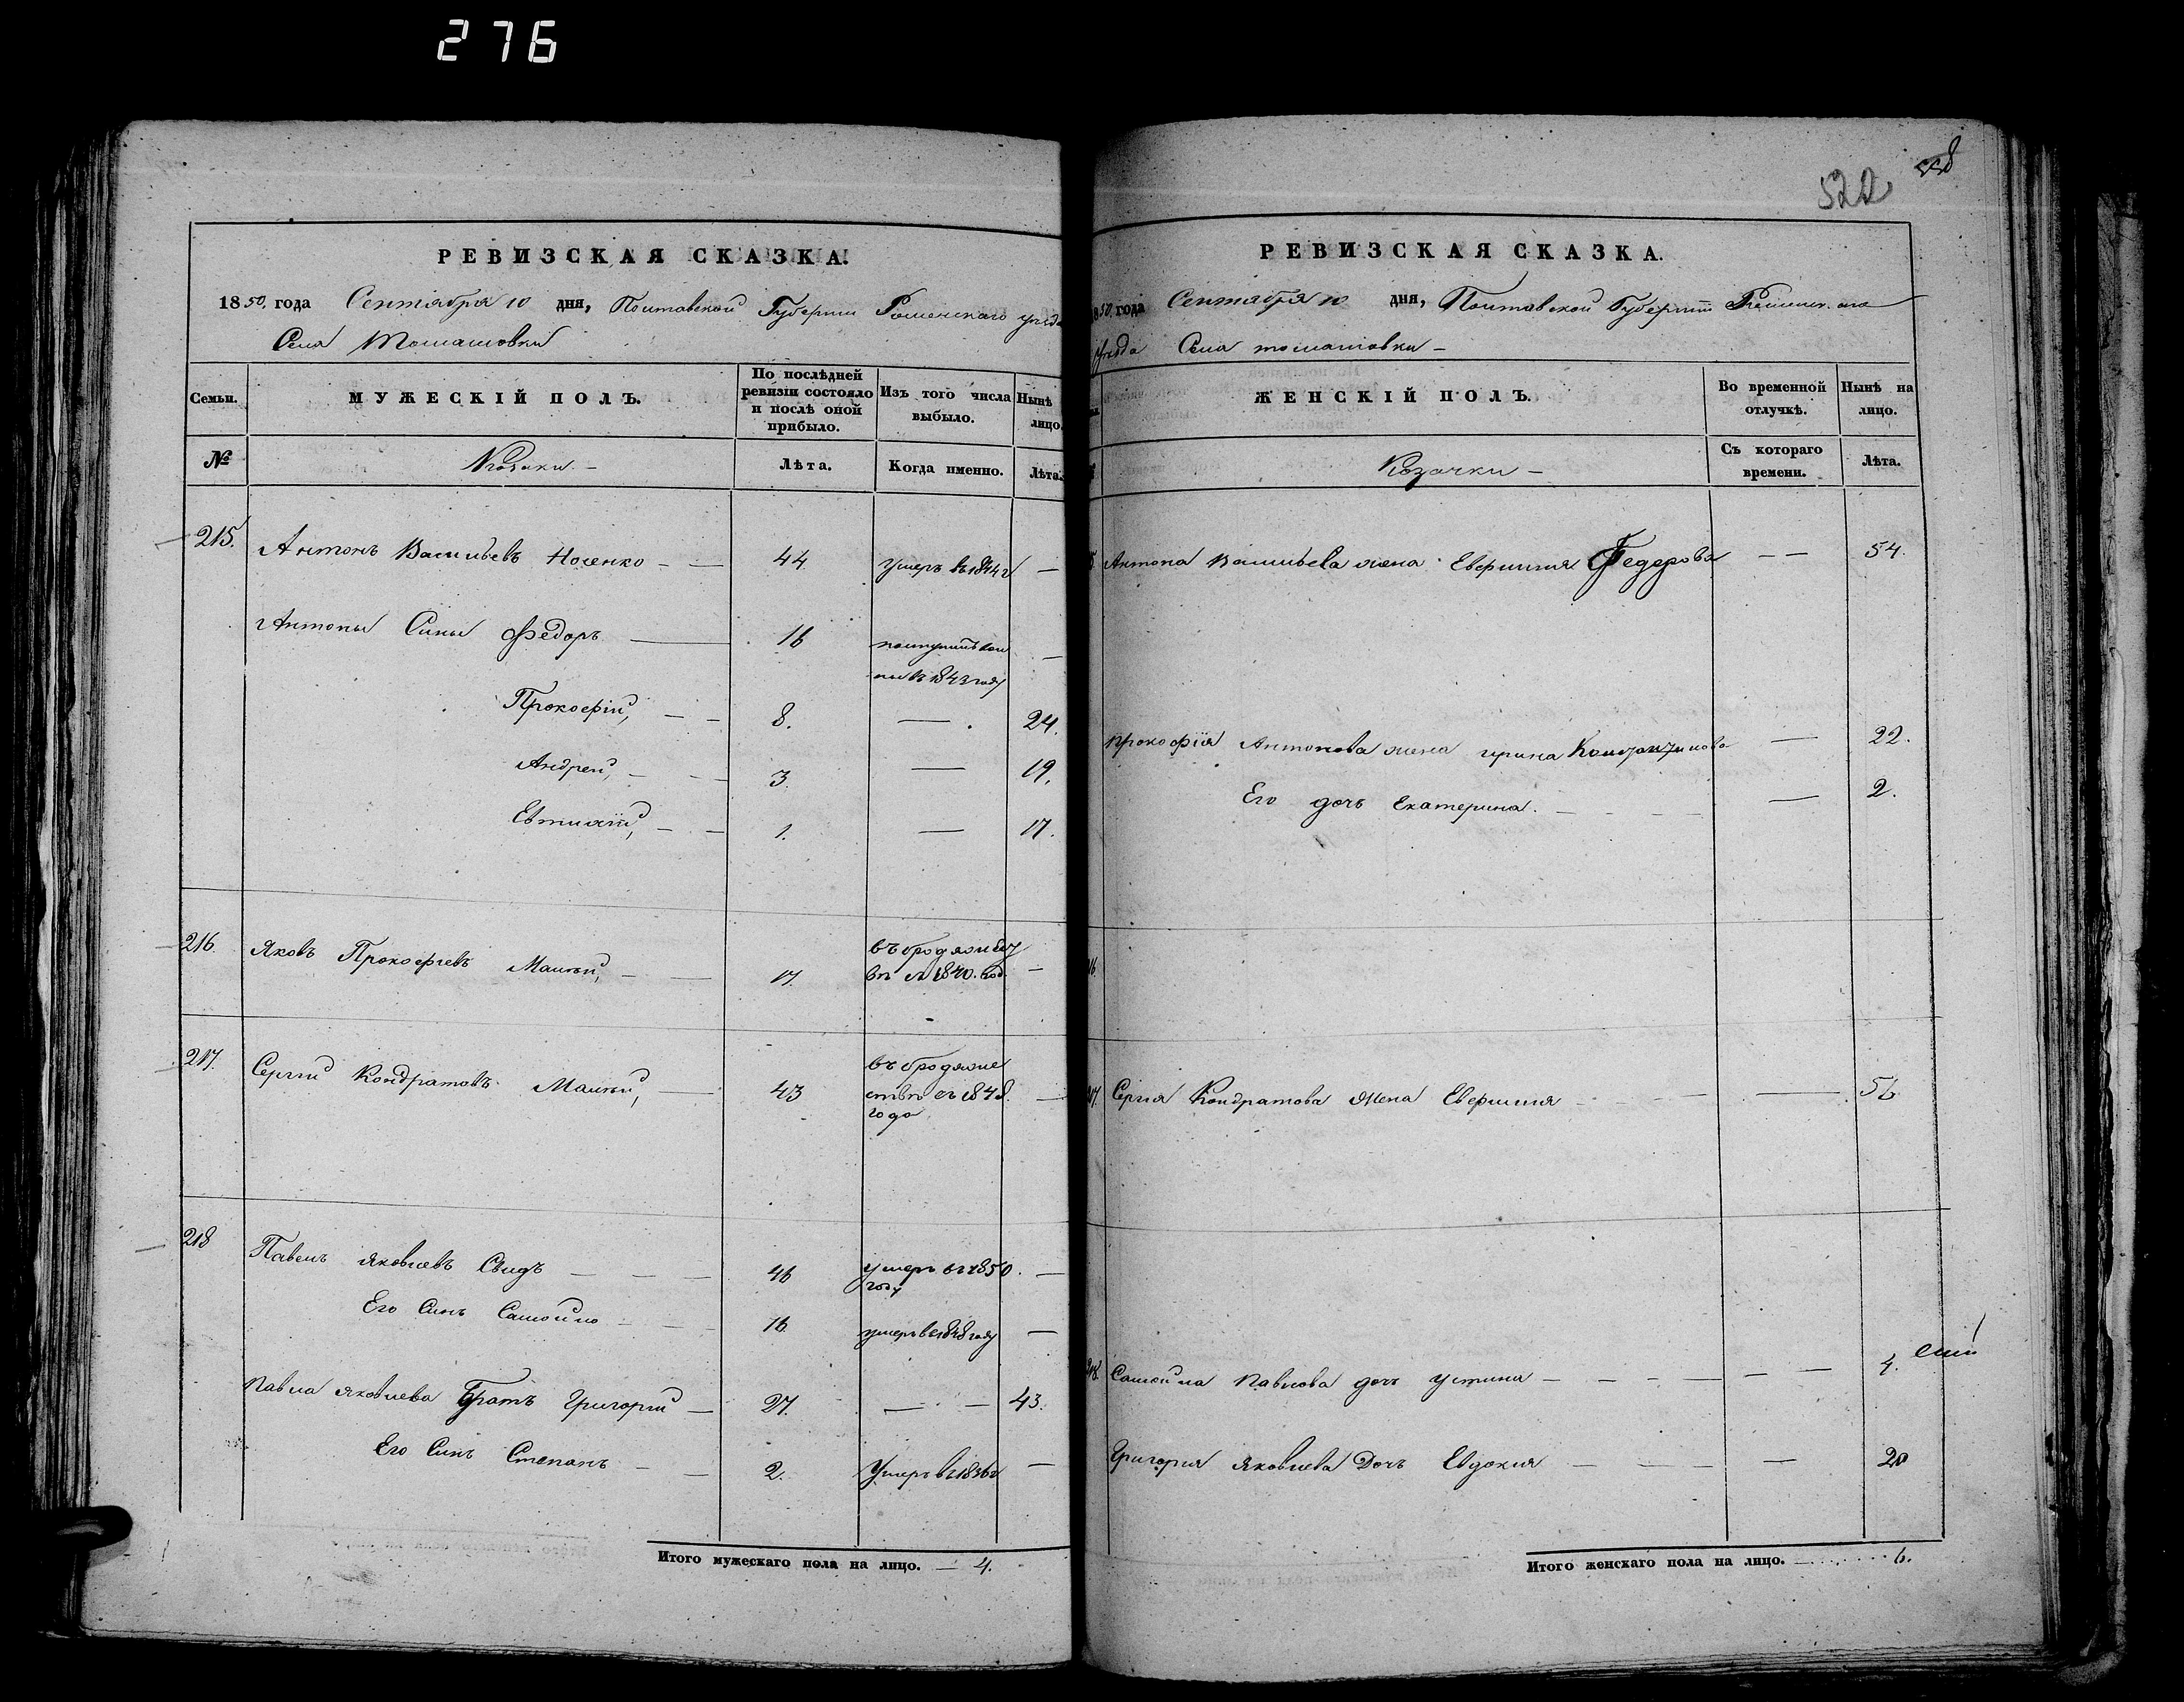 276
522
РЕВИЗСКАЯ СКАЗКА.
1850. года Сентября 10 дня, Полтавской Губернии Роменскаго уезда
Села Томашовки
Семьи.
МУЖЕСКІЙ ПОЛЪ.
По послѣдней
ревизіи состояло
и послѣ оной
прибыло.
Изъ того числа
выбыло.
Нынѣ
лицо.
№
Козаки. —
Лѣта.
Когда именно.
Лѣта.
215. Антонъ Васильевъ Носенко — — 44 умеръ въ 1844 г —
Антоны Сины Федоръ — 16
въ 1843 году —
Прокофій, — — 8. — 24.
Андрей, — — 3. — 19.
Евтихій, — — 1. — 17.
216. Яковъ Прокофьевъ Малый, — — 17.
1840. год. —
217. Сергій Кондратовъ Малый, — 43 въ бродяже
ствѣ съ 1848. —
года
218 Павелъ Яковлевъ Свидъ — — — 46 умеръ въ 1850. —
году
Его Синъ Самойло — — — 16 умеръ в 1848 году —
Павла Яковлева Братъ Григорій — 27. — — 43.
Его Синъ Степанъ — — 2. Умеръ в 1836 г —
Итого мужескаго пола на лицо. — 4.
РЕВИЗСКАЯ СКАЗКА.
1850. года Сентября 10 дня, Полтавской Губерніи Роменскаго
Уезда Села томашовки —
ЖЕНСКІЙ ПОЛЪ.
Во временной
отлучкѣ.
Нынѣ на
лицо.
Козачки —
Съ котораго
времени.
Лѣта.
Антона Васильева жена Евфимия Федорова — — 54.
Прокофія Антонова жена ирина — 22.
Его дочь Екатерина. — — 2.
217. Сергія Кондратова жена Евфимия — — 56
218. Самойла Павлова дочь устина — — — — 4.
Григория Яковлева Дочь Евдокия — — — — 20
Итого женскаго пола на лицо. — 6.